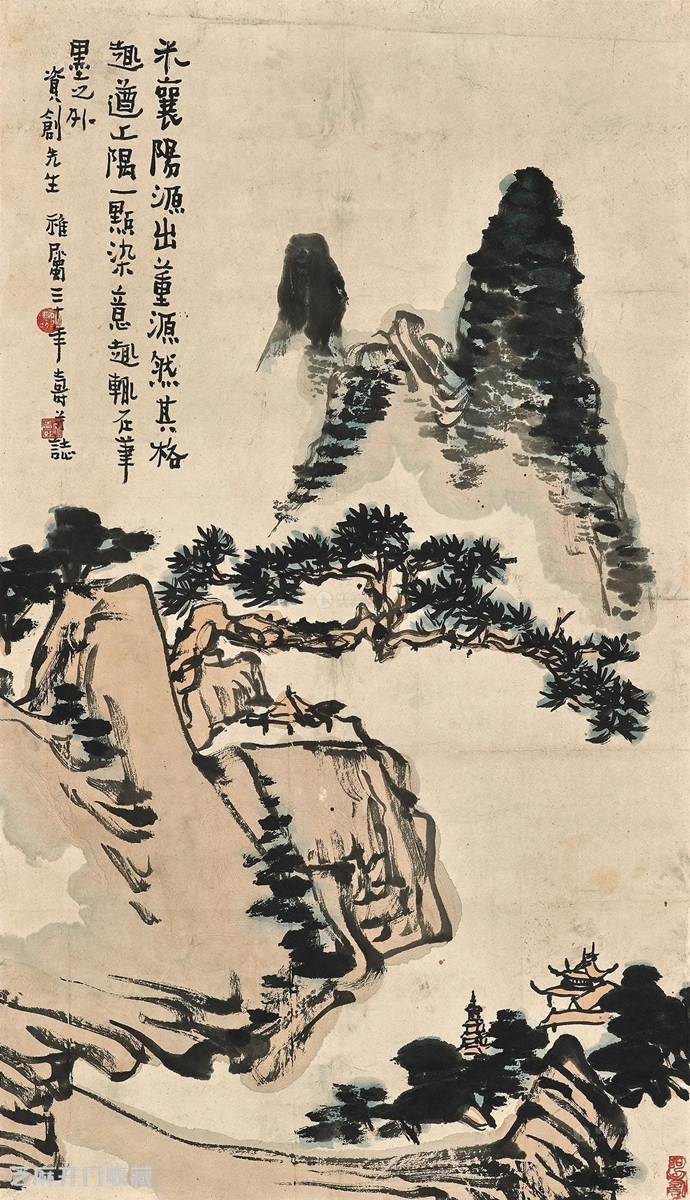 米襄陽源出董源然其格
趣遒上隅一點染意趣輒在筆
墨之外
資創先生 雅屬三十年壽芝誌
芝麻开门收藏